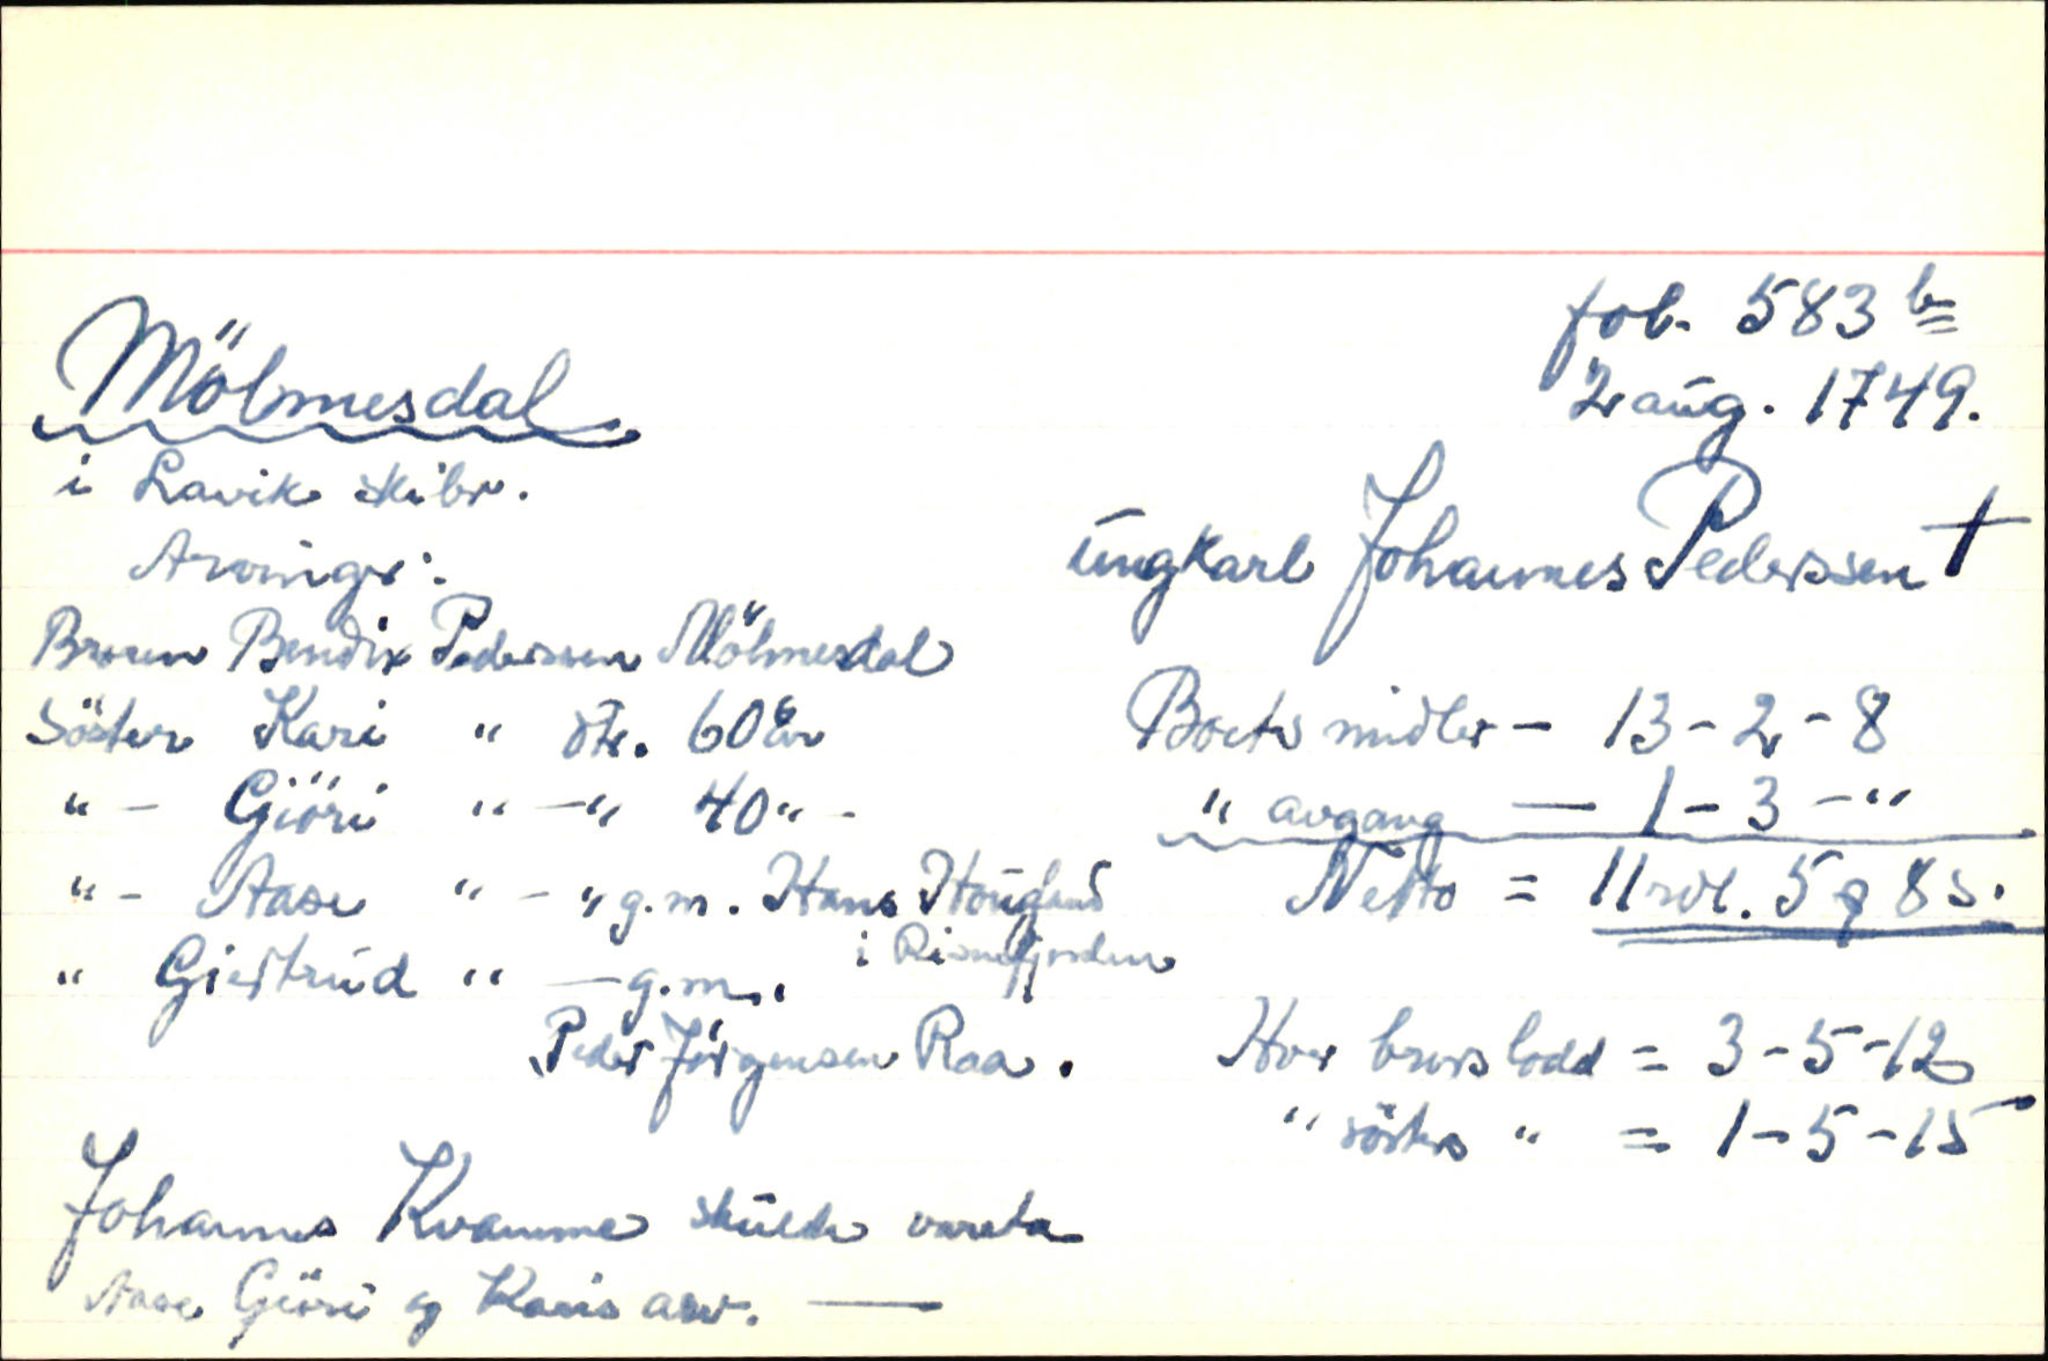 fol. 583 b
2 aug. 1749.
Mölmesdal
i Lavik skibr.
Arvinger:
ungkarl Johannes Pederssen †
Broren Bendix Pederssen Mölmesdal
Söster Kari " dtr. 60 år
" - Giöri " - " 40 " -
" - Aase " - " g.m. Hans Hougland
i Risnefjorden
" Giertrud " - g.m.
Peder Jörgensen Raa.
Boets midler - 13 - 2 - 8
" avgang - 1 - 3 - "
Netto = 11 rdl. 5 q 8 s.
Hver brors lodd = 3 - 5 - 12
" sösters " = 1 - 5 - 15
Johannes Kvamme skulde vareta
Aase Giöri og Karis arv. -